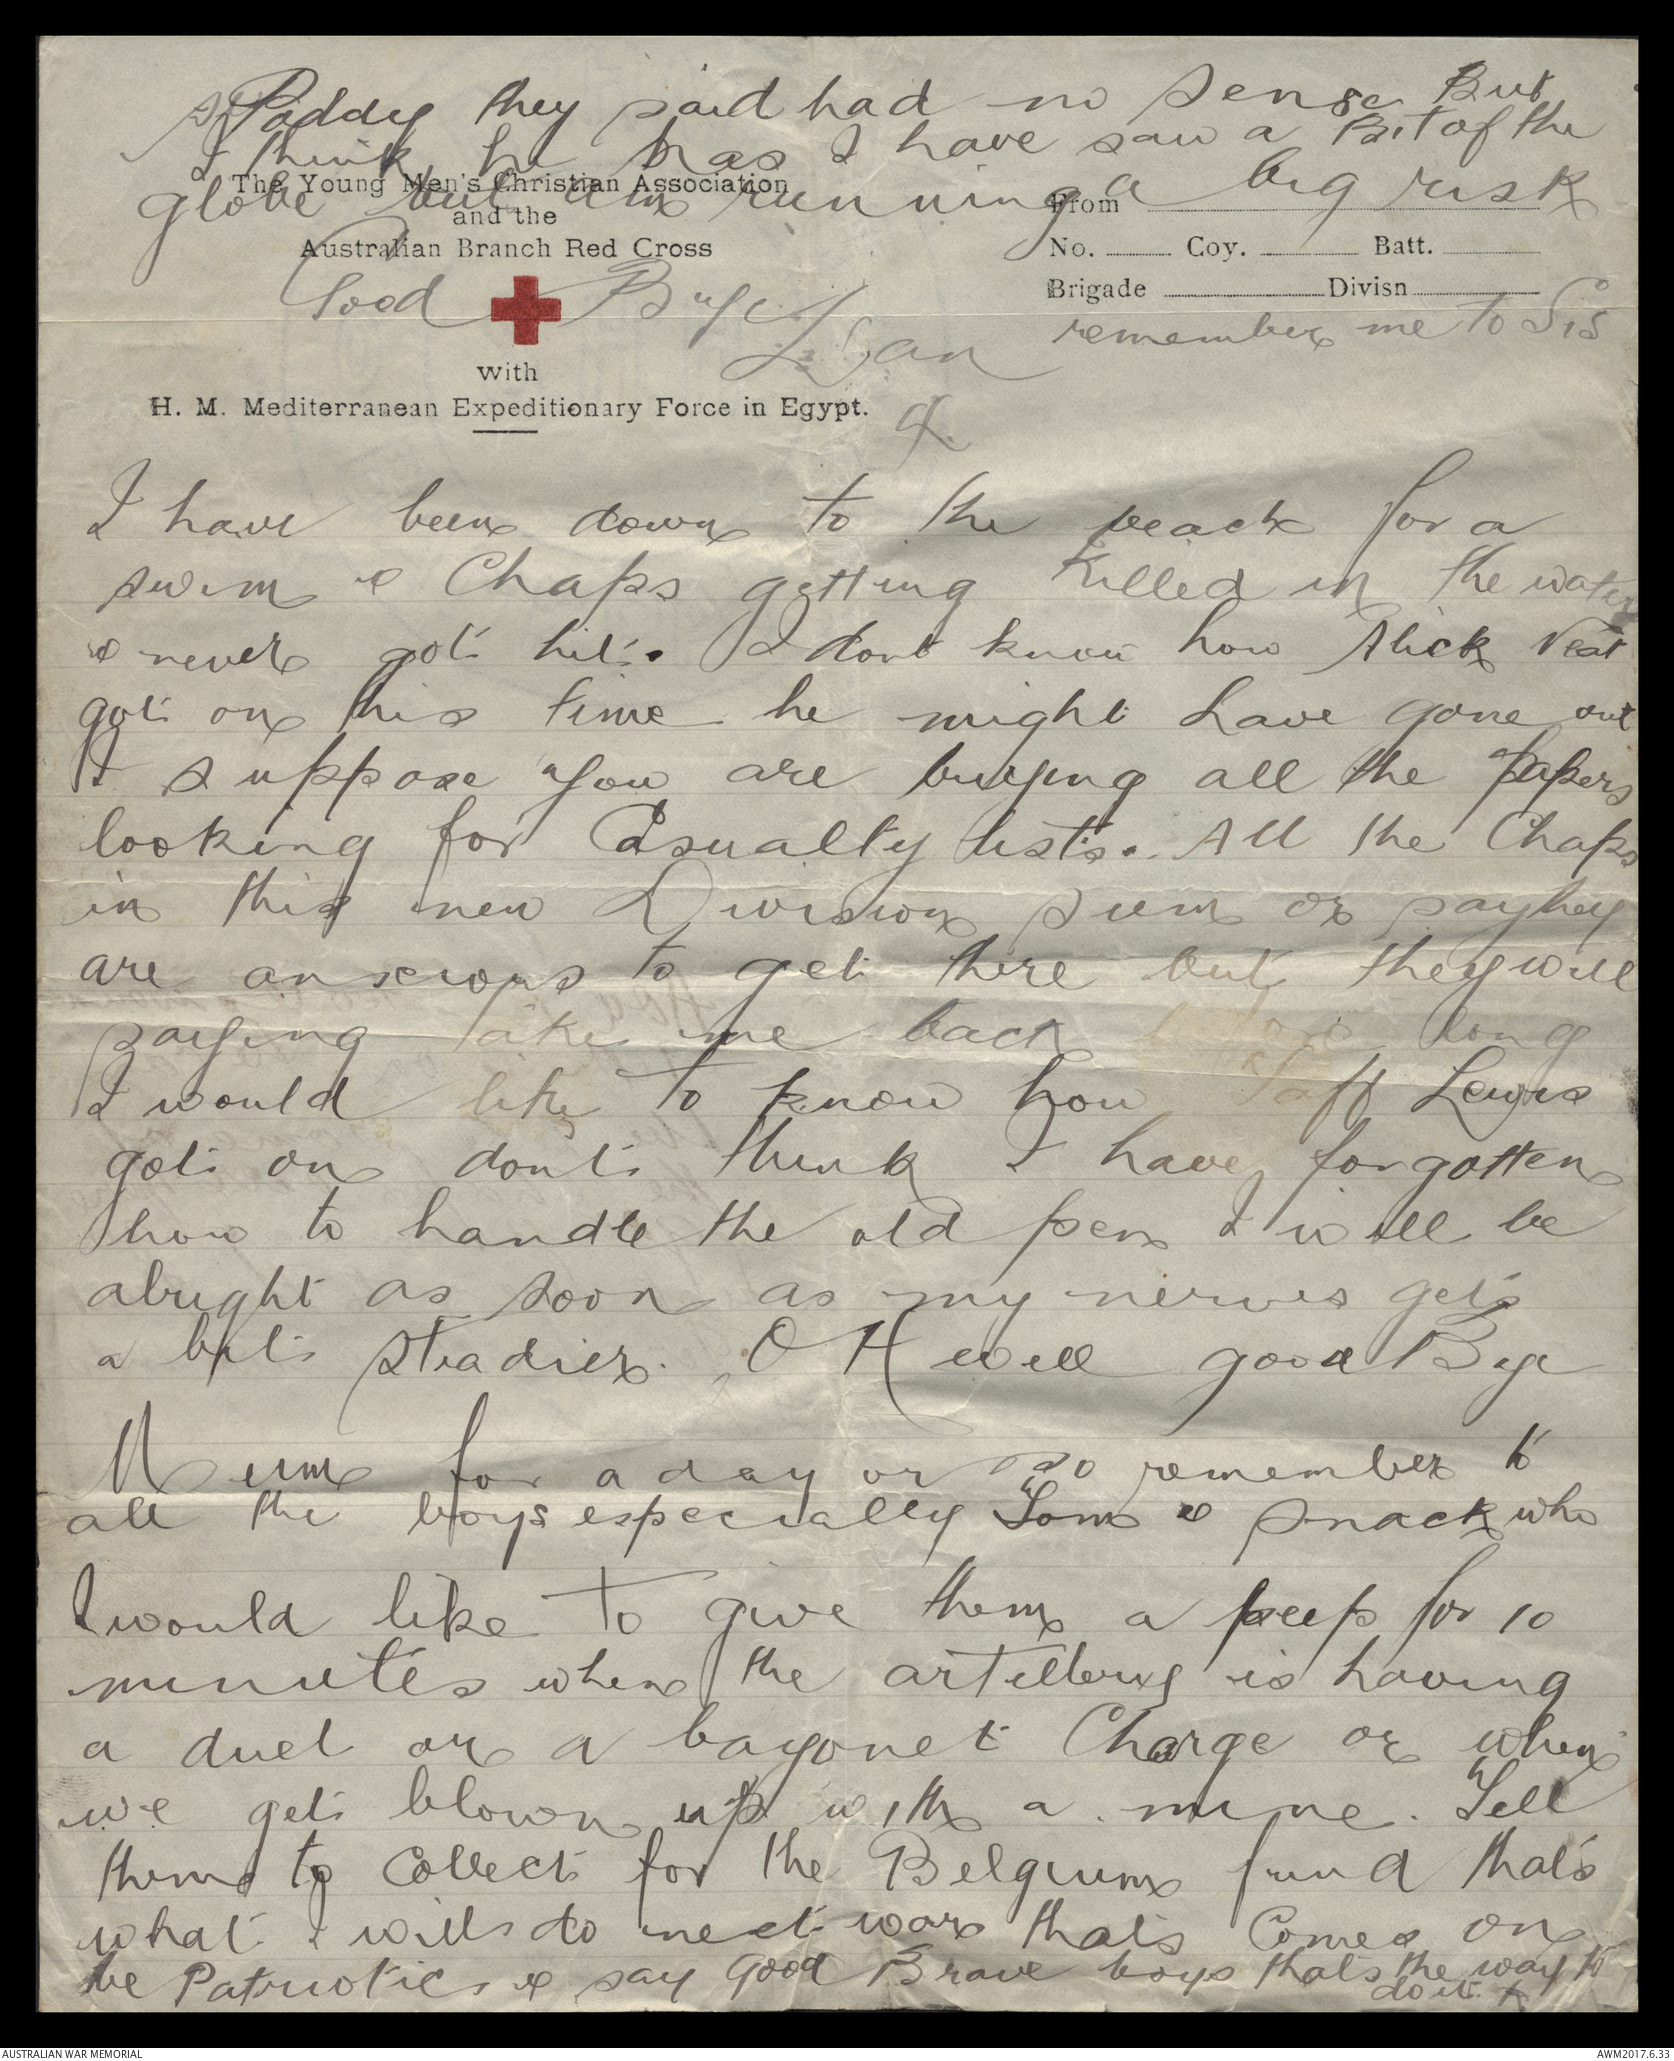 Paddy they said had no sense But
I think he has I have saw a Bit of the
globe but am running a big risk
The Young Men's Christian Association
and the
Australian Branch Red Cross
From
No. Coy. Batt.
Brigade Divisn
Good Bye
remember me to Sis
Dan
with
H. M. Mediterranean Expeditionary Force in Egypt.
I have been down to the beach for a
swim & Chaps getting killed in the water
& never got hit. I dont know how Alick Veat
got on this time he might have gone out
I suppose you are buying all the papers
looking for Casualty lists. All the Chaps
in this new Division seem or say they
are anxious to get there but they will
saying take me back before long
I would like to know how Taff Lewis
got on dont think I have forgotten
how to handle the old pen I will be
alright as soon as my nerves gets
a bit steadier. OH well good Bye
Mum for a day or so remember to
all the boys especially Tom & Snack who
I would like to give them a peep for 10
minutes when the artillery is having
a duel or a bayonet Charge or when
we get blown up with a mine. Tell
them to Collect for the Belgium fund that's
what I will do next war that's Comes on
be Patriotic & say good Brave boys that's the way to
do it x
AUSTRALIAN WAR MEMORIAL
AWM2017.6.33